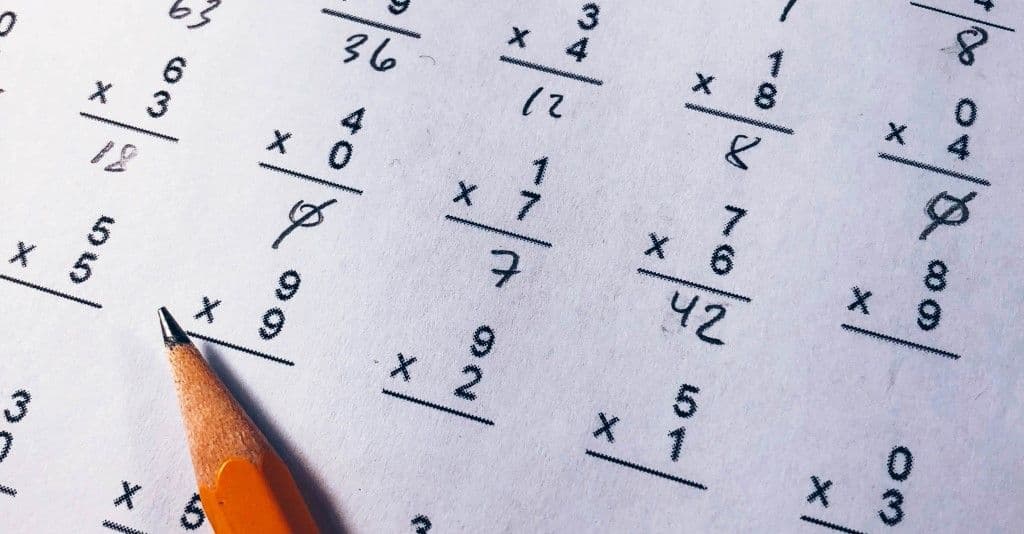 8
9 3 1 0
x 4 x 8 x 4
63 36 12 8 0
6 4 1 7 8
x 3 x 0 x 7 x 6 x 9
18 0 7 42
5 9 9 5 0
x 5 x 9 x 2 x 1 x 3
3
x